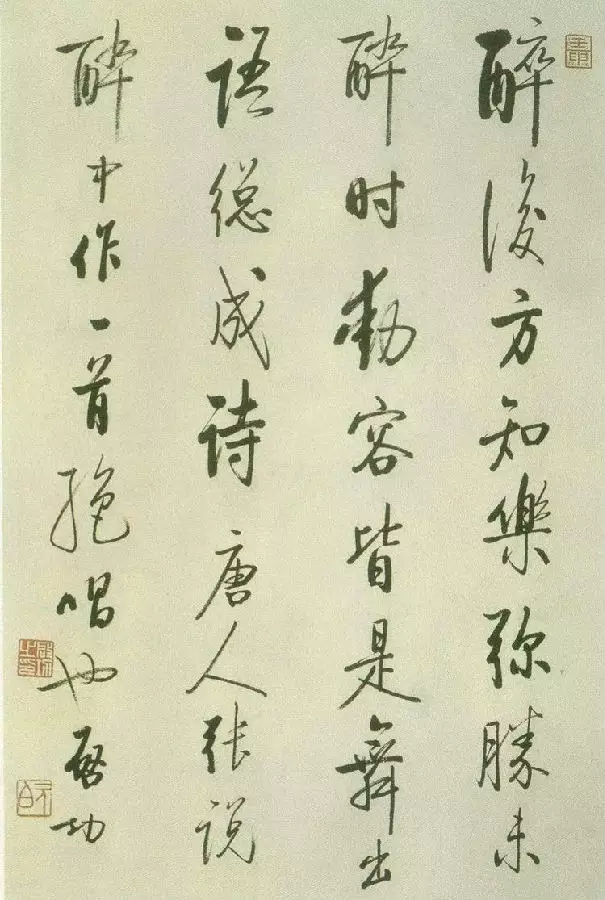 醉後方知樂弥勝未
醉时動容皆是舞出
语總成诗 唐人张说
醉中作一首絶唱也 啓功